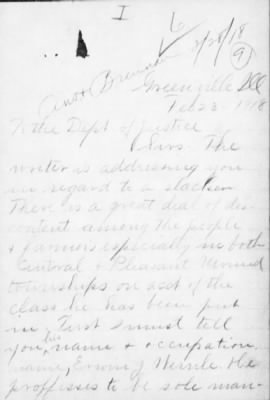 I
6
2/28/18
9
Brennan
Greenville Ill
Feb 23 - 1918
To the Dept of Justice
Sirs - The
writer is addressing you
in regard to a slacker
There is a great deal of dis-
content among the people
& farmers especially in both
Central & Pleasant Mound
townships on acct of the
class he has been put
in, First I must tell
you his name & occupation,
name, J Wernle He
professes to be sole man-